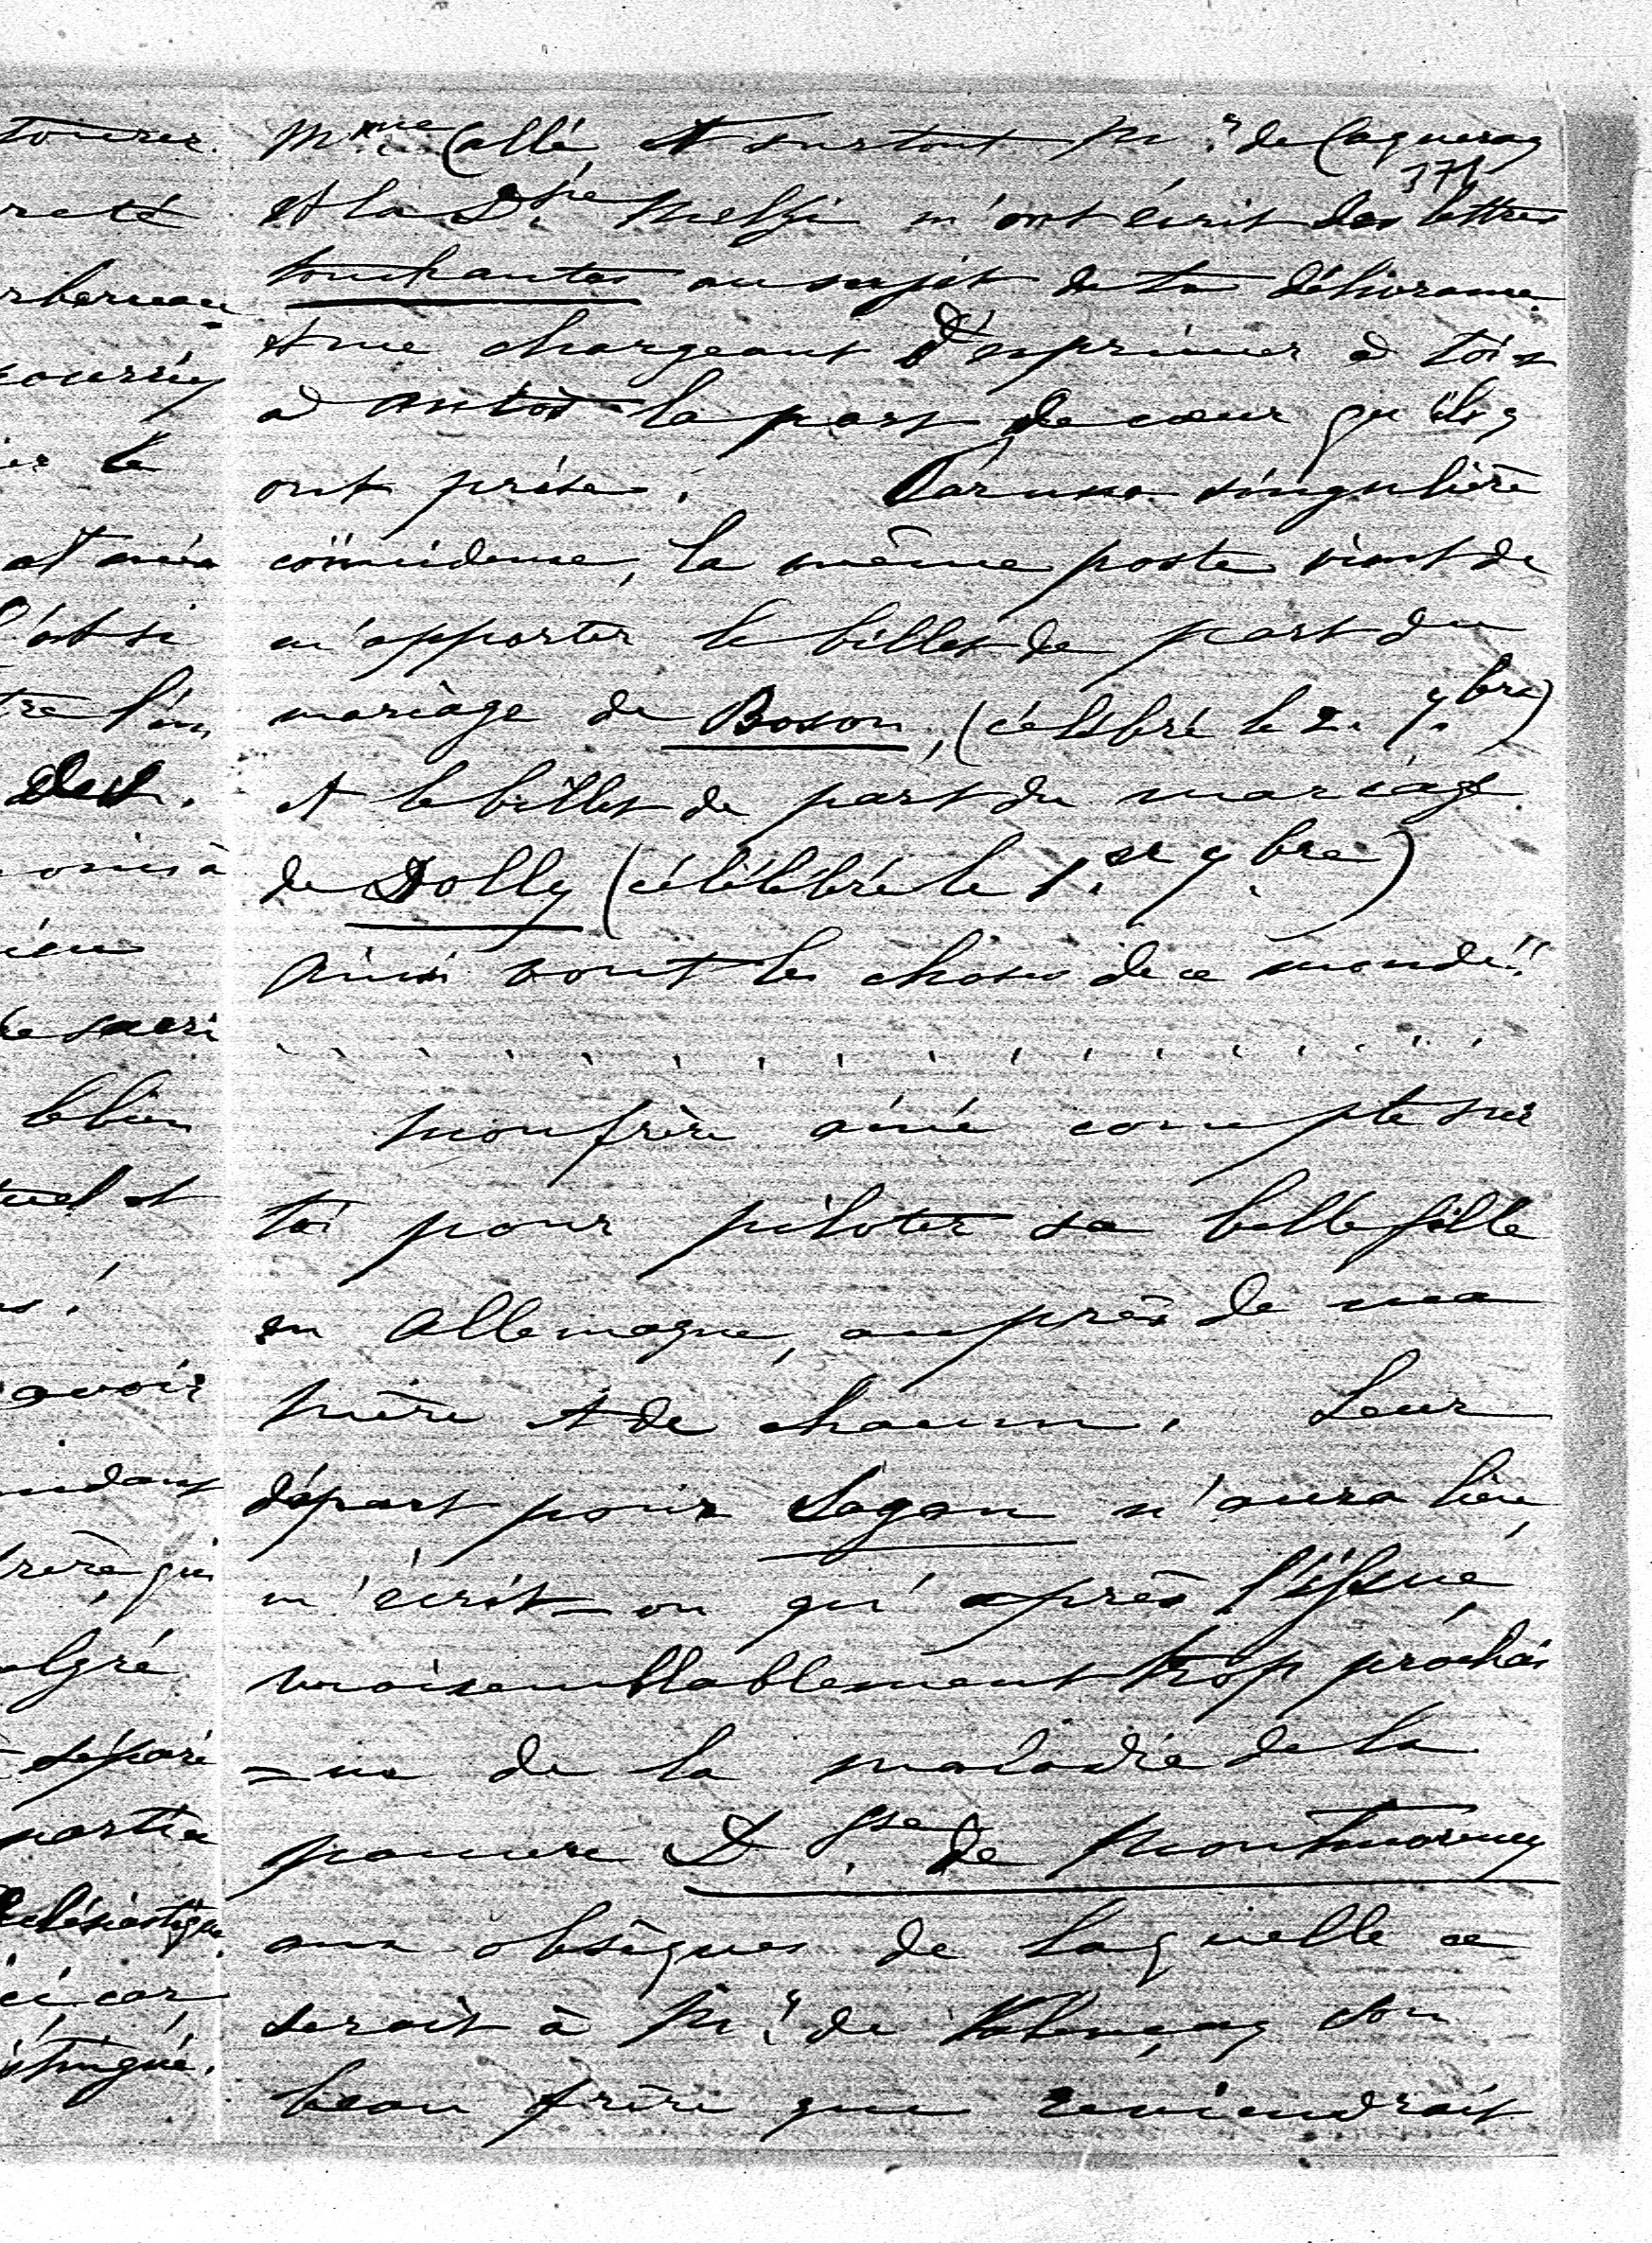 tourer.
reté
et
l'est si
ecclésiastique
avoir
malgré
séparé
partie
Mme Callé, et surtout Mr. de Caqueray
371
et la Dsse Melzi m'ont écrit des lettres
touchantes au sujet de ta délivrance
et me chargeant d'exprimer à toi &
à Antos la part de cœur qu'ils y
ont prise. Par une singulière
coïncidence, la même poste vient de
m'apporter le billet de part du
mariage de Boson, (célébré le 2. 7.bre)
et le billet de part du mariage
de Dolly (célélébré le 1.er 7.bre)
Ainsi vont les choses de ce monde!!
. . . . . . . . . . . . . . . .
Mon frère aîné compte sur
toi pour piloter sa belle fille
en Allemagne, auprès de ma
mère et de chacun. Leur
départ pour Sagan n'aura lieu,
m'écrit-on qu'après l'issue,
vraisemblablement trop prochai
=ne de la maladie de la
pauvre D.sse de Montmorency
aux obsèques de laquelle ce
serait à Mr. de Valençay son
beau frère que reviendrait